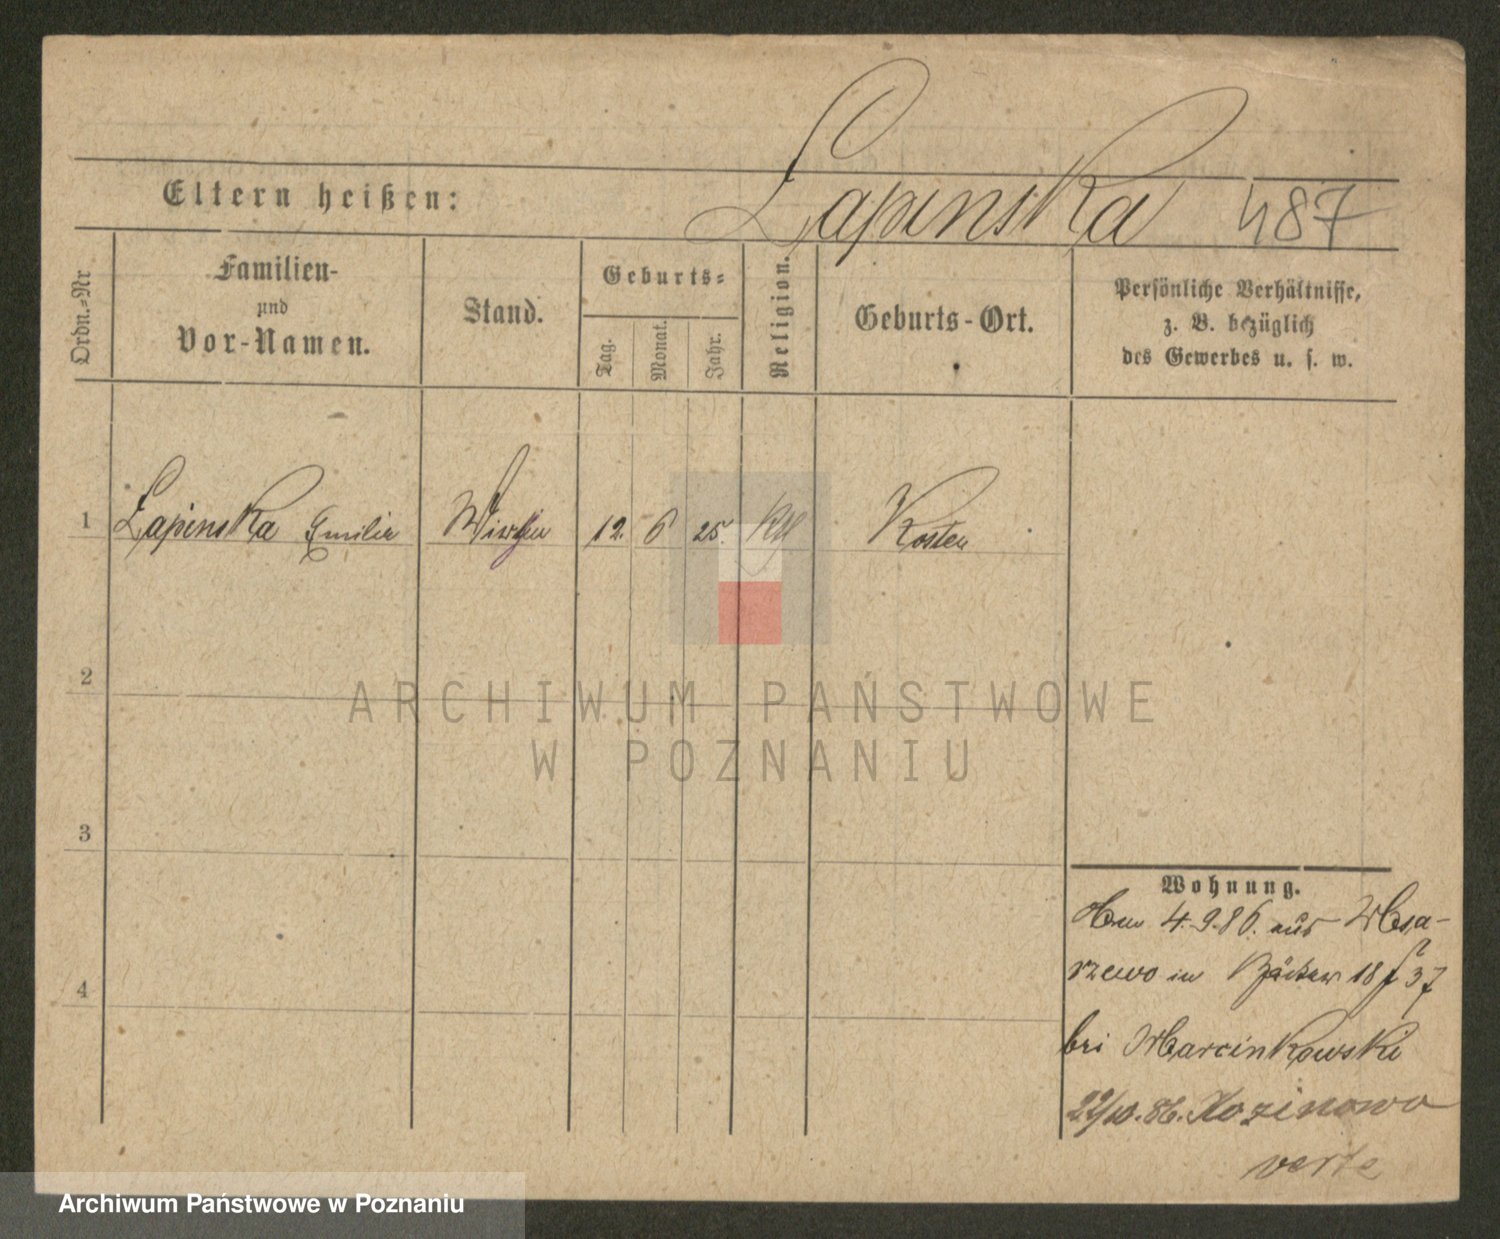 Lapinska 487
Eltern heißen:
Ordn.-Nr
Familien-
und
Vor-Namen.
Stand.
Geburts-
Tag.
Monat.
Jahr.
Religion.
Geburts-Ort.
Persönliche Verhältnisse,
z. B. bezüglich
des Gewerbes u. s. w.
1 Lapinska Emilie 12. 6 25. Kth Kosten
2
3
4
Wohnung.
4.9.86. aus
in Bäcker 18 37
bei Marcinkowski
22/10.86.
verte
ARCHIWUM PAŃSTWOWE
W POZNANIU
Archiwum Państwowe w Poznaniu